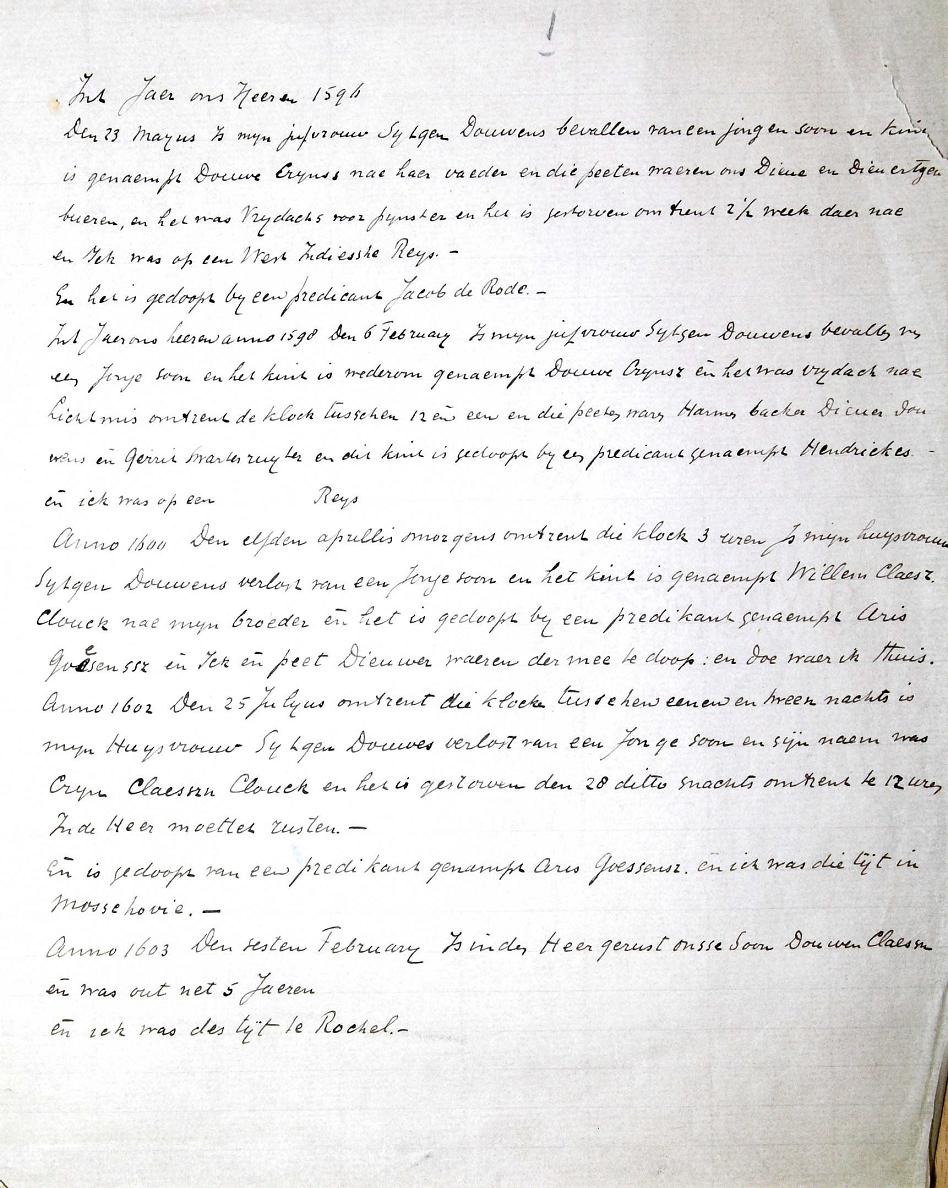 1
Int Jaer ons Heeren 1596
Den 23 Mayus Is myn jufvrouw Sytgen Douwens bevallen van een jongen soon en kint
is genaempt Douwe Crynss nae haer vaeder en die peeten waeren ons Diewe en Diewertgen
bueren, en het was Vrydachs voor pynster en het is gestorven omtrent 2½ week daer nae
en Ick was op een West Indiesshe Reys. —
En het is gedoopt by een predicant Jacob de Rode. —
Int Jaer ons heeren anno 1598 Den 6 February Is myn jufvrouw Sytgen Douwens bevallen van
een Jonge soon en het kint is wederom genaempt Douwe Crynsz en het was vrydach nae
Lichtmis omtrent de klock tusschen 12 en een en die peeten waren Harmen backer Diewer Dou
wens en Gerrit ruyter en dit kint is gedoopt by een predicant genaempt Hendrickes. -
en ick was op een Reys
Anno 1600 Den elfden aprillis smorgens omtrent die klock 3 uren Is mijn huysvrouw
Sytgen Douwens verlost van een Jonge soon en het kint is genaempt Willem Claesz.
Clouck nae mijn broeder en het is gedoopt by een predikant genaempt Aris
Goesenssz en Ick en peet Diewer waeren der mee te doop: en doe waer ik thuis.
Anno 1602 Den 25 Julyus omtrent die klocke tusschen eenen en tween nachts is
myn Huysvrouw Sytgen Douwes verlost van een Jonge soon en sijn naem was
Cryn Claessen Clouck en het is gestorven den 28 ditto snachts omtrent te 12 uren
In de Heer moettet rusten. —
En is gedoopt van een predikant genampt Aris Goessensz. en ick was die tijt in
Mosschovie. —
Anno 1603 Den sesten February Is in den Heer gerust onsse Soon Douwen Claessen
en was out net 5 Jaeren
en ick was des tijt te Rochel. —